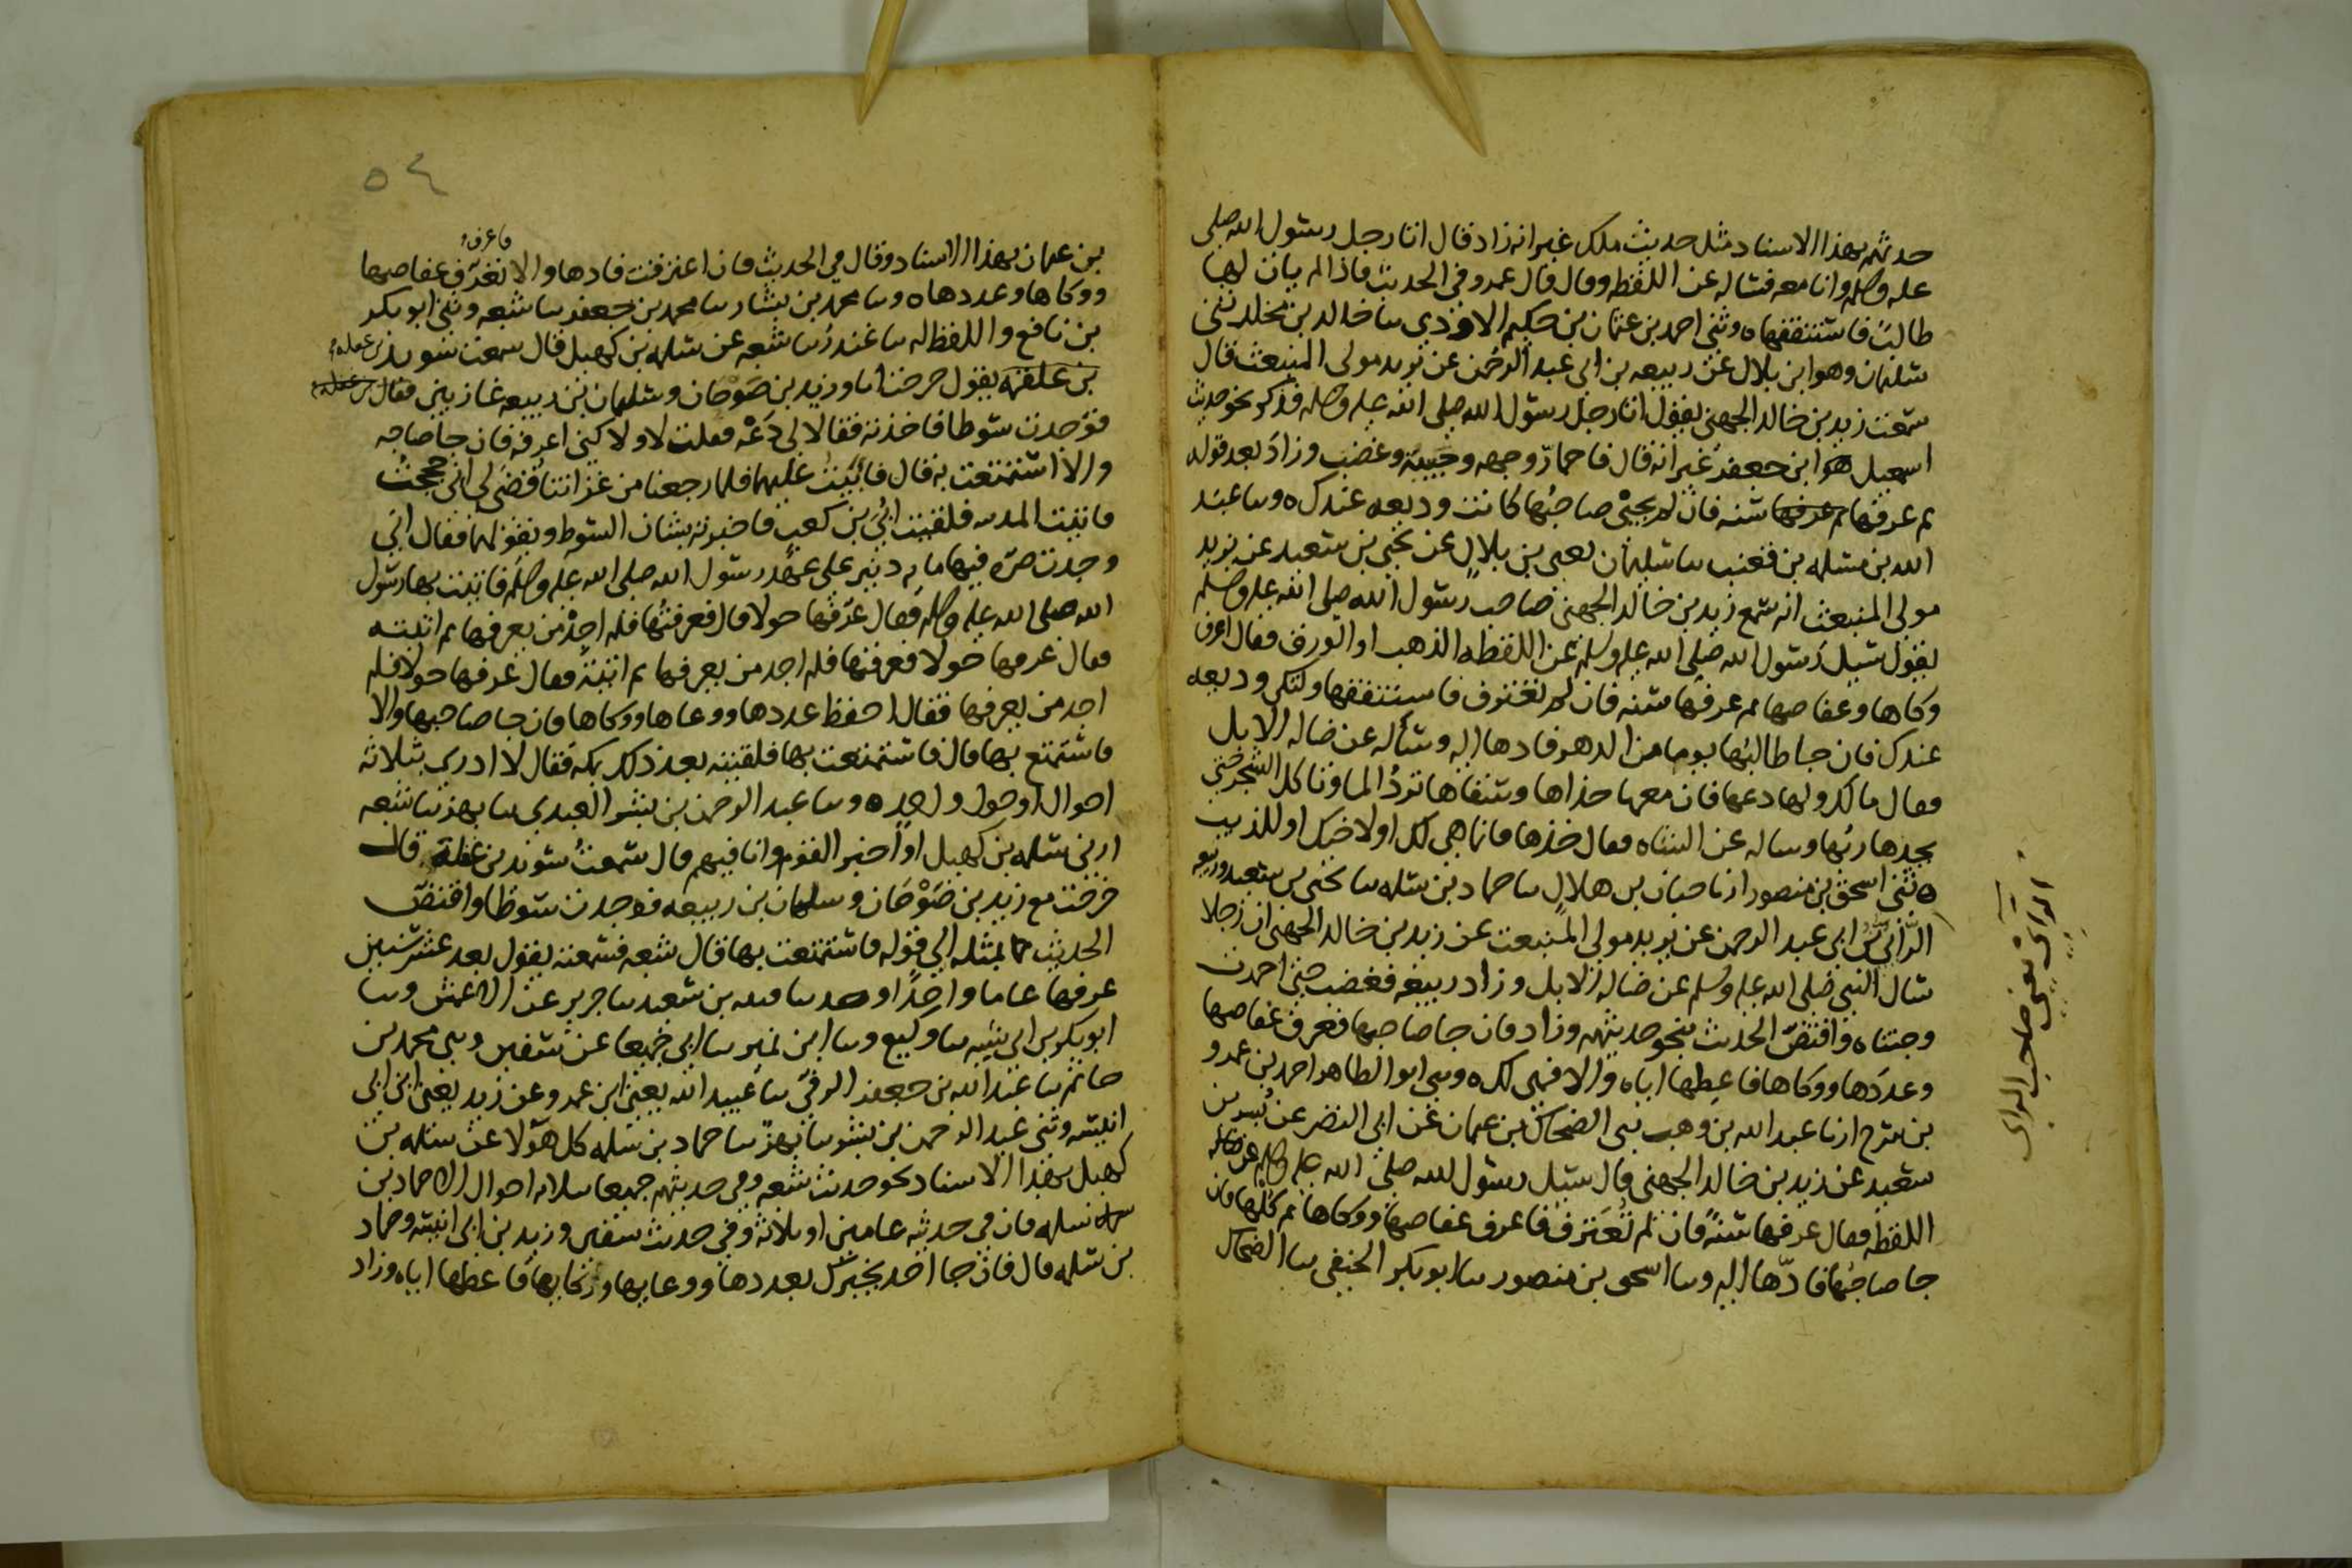 حدثهم بهذا الاسناد مثل حديث ملك غير انه زاد قال اتا رجل رسول الله صلى
عليه وسلم وانا معه فساله عن اللقطه وقال قال عمرو في الحديث فاذا لم يات لها
طالب فاستنفقها ه وثنى احمد بن عثمان بن حكيم الاودي سا خالد بن مخلد ثنى
سليمان وهو ابن بلال عن ربيعه بن ابي عبد الرحمن عن يزيد مولى المنبعث قال
سمعت زيد بن خالد الجهني يقول اتا رجل رسول الله صلى الله عليه وسلم فذكر نحو حديث
اسمعيل هو ابن جعفر غير انه قال فاحمار وجهه وجبينه وغضب وزاد بعد قوله
ثم عرفها ثم عرفها سنه فان لم يجئ صاحبها كانت وديعه عندك ه وسا عبد
الله بن مسلمه بن قعنب سا سليمان يعني بن بلال عن يحيى بن سعيد عن يزيد
مولى المنبعث انه سمع زيد بن خالد الجهني صاحب رسول الله صلى الله عليه وسلم
يقول سيل رسول الله صلى الله عليه وسلم عن اللقطه الذهب او الورق فقال اعرف
وكاها وعفاصها ثم عرفها سنه فان لم تعترف فاستنفقها ولتكن وديعه
عندك فان جا طالبها يوما من الدهر فادها اليه وسأله عن ضاله الابل
فقال مالك ولها دعها فان معها حذاها وسقاها ترد الما وتاكل الشجر حتى
يجدها ربها وساله عن الشاه فقال خذها فانما هي لك او لاخيك او للذيب
ه ثنى اسحق بن منصور انا حبان بن هلال سا حماد بن سلمه سا يحيى بن سعيد وربيعه
الرأي بن ابي عبد الرحمن عن يزيد مولى المنبعث عن زيد بن خالد الجهني ان رجلا
سال النبي صلى الله عليه وسلم عن ضاله الابل وزاد ربيعه فغضب حتى احمرت
وجنتاه واقتص الحديث بنحو حديثهم وزاد فان جا صاحبها فعرف عفاصها
وعددها ووكاها فاعطها اياه والا فهي لك ه وثنى ابو الطاهر احمد بن عمرو
بن سرح انا عبد الله بن وهب ثنى الضحاك بن عثمان عن ابي النضر عن بسر بن
سعيد عن زيد بن خالد الجهني قال سيل رسول الله صلى الله عليه وسلم عن
اللقطه فقال عرفها سنة فان لم تعترف فاعرف عفاصها ووكاها ثم كلها فان
جا صاحبها فادها اليه وسا اسحق بن منصور سا ابو بكر الحنفي سا الضحاك
الرأي يعني صاحب الراي
٥٤
فاعرف
بن عثمان بهذا الاسناد وقال في الحديث فان اعترفت فادها والا تعرف عفاصها
ووكاها وعددها ه وسا محمد بن بشار سا محمد بن جعفر سا شعبه وثنى ابو بكر
بن نافع واللفظ له سا غندر سا شعبه عن سلمه بن كهيل قال سمعت سويد بن غفله
بن علقمه يقول خرجت انا وزيد بن صوحان وسليمان بن ربيعه غازيين فقال
فوجدت سوطا فاخذته فقالا لي دعه فقلت لا ولا كني اعرفه فان جا صاحبه
والا استمتعت به قال فابيت عليهما فلما رجعنا من غزاتنا قضي لي اني حججت
فاتيت المدينه فلقيت ابي بن كعب فاخبرته بشان السوط وبقولهما فقال اني
وجدت صره فيها مايه دينر على عهد رسول الله صلى الله عليه وسلم فاتيت بها رسول
الله صلى الله عليه وسلم فقال عرفها حولا قال فعرفتها فلم اجد من يعرفها ثم اتيته
فقال عرفها حولا فعرفتها فلم اجد من يعرفها ثم اتيته فقال عرفها حولا فلم
اجد من يعرفها فقال احفظ عددها ووعاها ووكاها فان جا صاحبها والا
فاستمتع بها قال فاستمتعت بها فلقيته بعد ذلك بمكه فقال لا ادري بثلاثه
احوال او حول واحد ه وسا عبد الرحمن بن بشر العبدي سا بهز سا شعبه
ارنى سلمه بن كهيل او اخبر القوم وانا فيهم قال سمعت سويد بن غفلة قال
خرجت مع زيد بن صوحان وسلمان بن ربيعه فوجدت سوطا واقتص
الحديث بمثله الى قوله فاستمتعت بها قال شعبه فسمعته يقول بعد عشر سنين
عرفها عاما واحدا وسا قتيبه بن سعيد سا جرير عن الاعمش وسا
ابو بكر بن ابي شيبه سا وكيع وسا ابن نمير سا ابي جميعا عن سفين وثنى محمد بن
حاتم سا عبد الله بن جعفر الرقي سا عبيد الله يعني ابن عمرو عن زيد يعني ابن ابي
انيسه وثنى عبد الرحمن بن بشر سا بهز سا حماد بن سلمه كل هولا عن سلمه بن
كهيل بهذا الاسناد نحو حديث شعبه وفي حديثهم جميعا ثلاثه احوال الا حماد بن
سلمه فان في حديثه عامين او ثلاثه وفي حديث سفين وزيد بن ابي انيسه وحماد
بن سلمه قال فان جا احد يخبرك بعددها ووعايها ووكايها فاعطها اياه وزاد